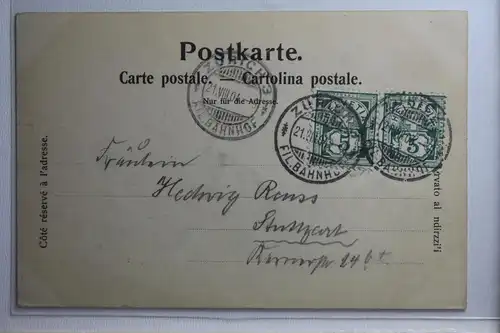 Postkarte.
Carte postale. Cartolina postale.
Nur für die Adresse.
ZÜRICH 3
21.VIII.04
FIL.BAHNHOF
ZÜRICH
21.VIII
FIL.BAHNHOF
5
5
Côté réservé à l'adresse.
Fräulein
Hedwig Reuss
Stuttgart
Kernerstr 24